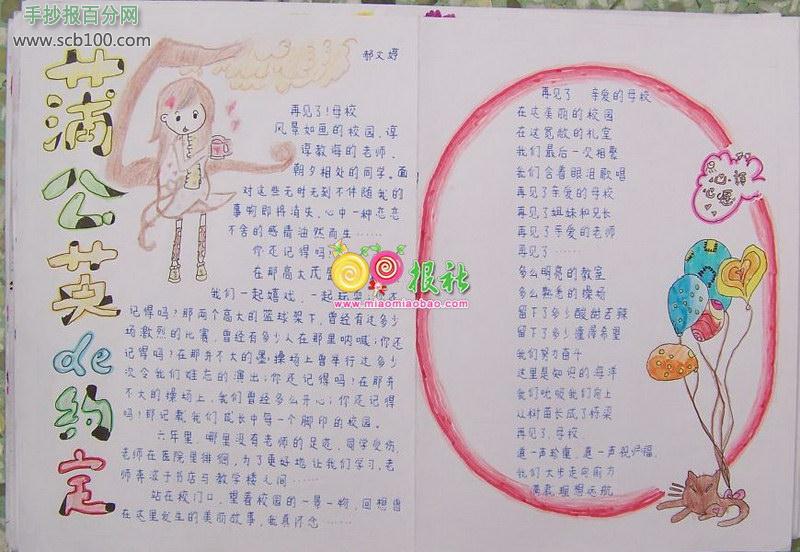 手抄报百分网
www.scb100.com
蒲公英de约定
郝文婷
再见了!母校
风景如画的校园,谆
谆教诲的老师,
朝夕相处的同学。面
对这些无时无刻不伴随我的
事物即将消失,心中一种恋恋
不舍的感情油然而生……
你还记得吗
在那高大茂
我们一起嬉戏,一起
记得吗?那两个高大的篮球架下,曾经有过多少
场激烈的比赛,曾经有多少人在那里呐喊;你还
记得吗?在那并不大的操场上曾举行过多少
次令我们难忘的演出;你还记得吗?在那并
不大的操场上,我们曾经多么开心;你还记得
吗!那记载我们成长中每一个脚印的校园。
六年里,哪里没有老师的足迹,同学受伤,
老师在医院里徘徊,为了更好地让我们学习,老
师奔波于书店与教学楼之间……
站在校门口,望着校园的一景一物,回想曾
在这里发生的美丽故事,我真怀念……
报社
www.miaomiaobao.com
再见了 亲爱的母校
在这美丽的校园
在这宽敞的礼堂
我们最后一次相聚
我们含着眼泪歌唱
再见了亲爱的母校
再见了姐妹和兄长
再见了亲爱的老师
再见了……
多么明亮的教室
多么熟悉的操场
留下了多少酸甜苦辣
留下了多少憧憬希望
我们努力奋斗
这里是知识的海洋
我们
从树苗长成了栋梁
再见了,母校,
道一声珍重,道一声祝福,
我们大步走向前方
满载理想远航
心语
心愿